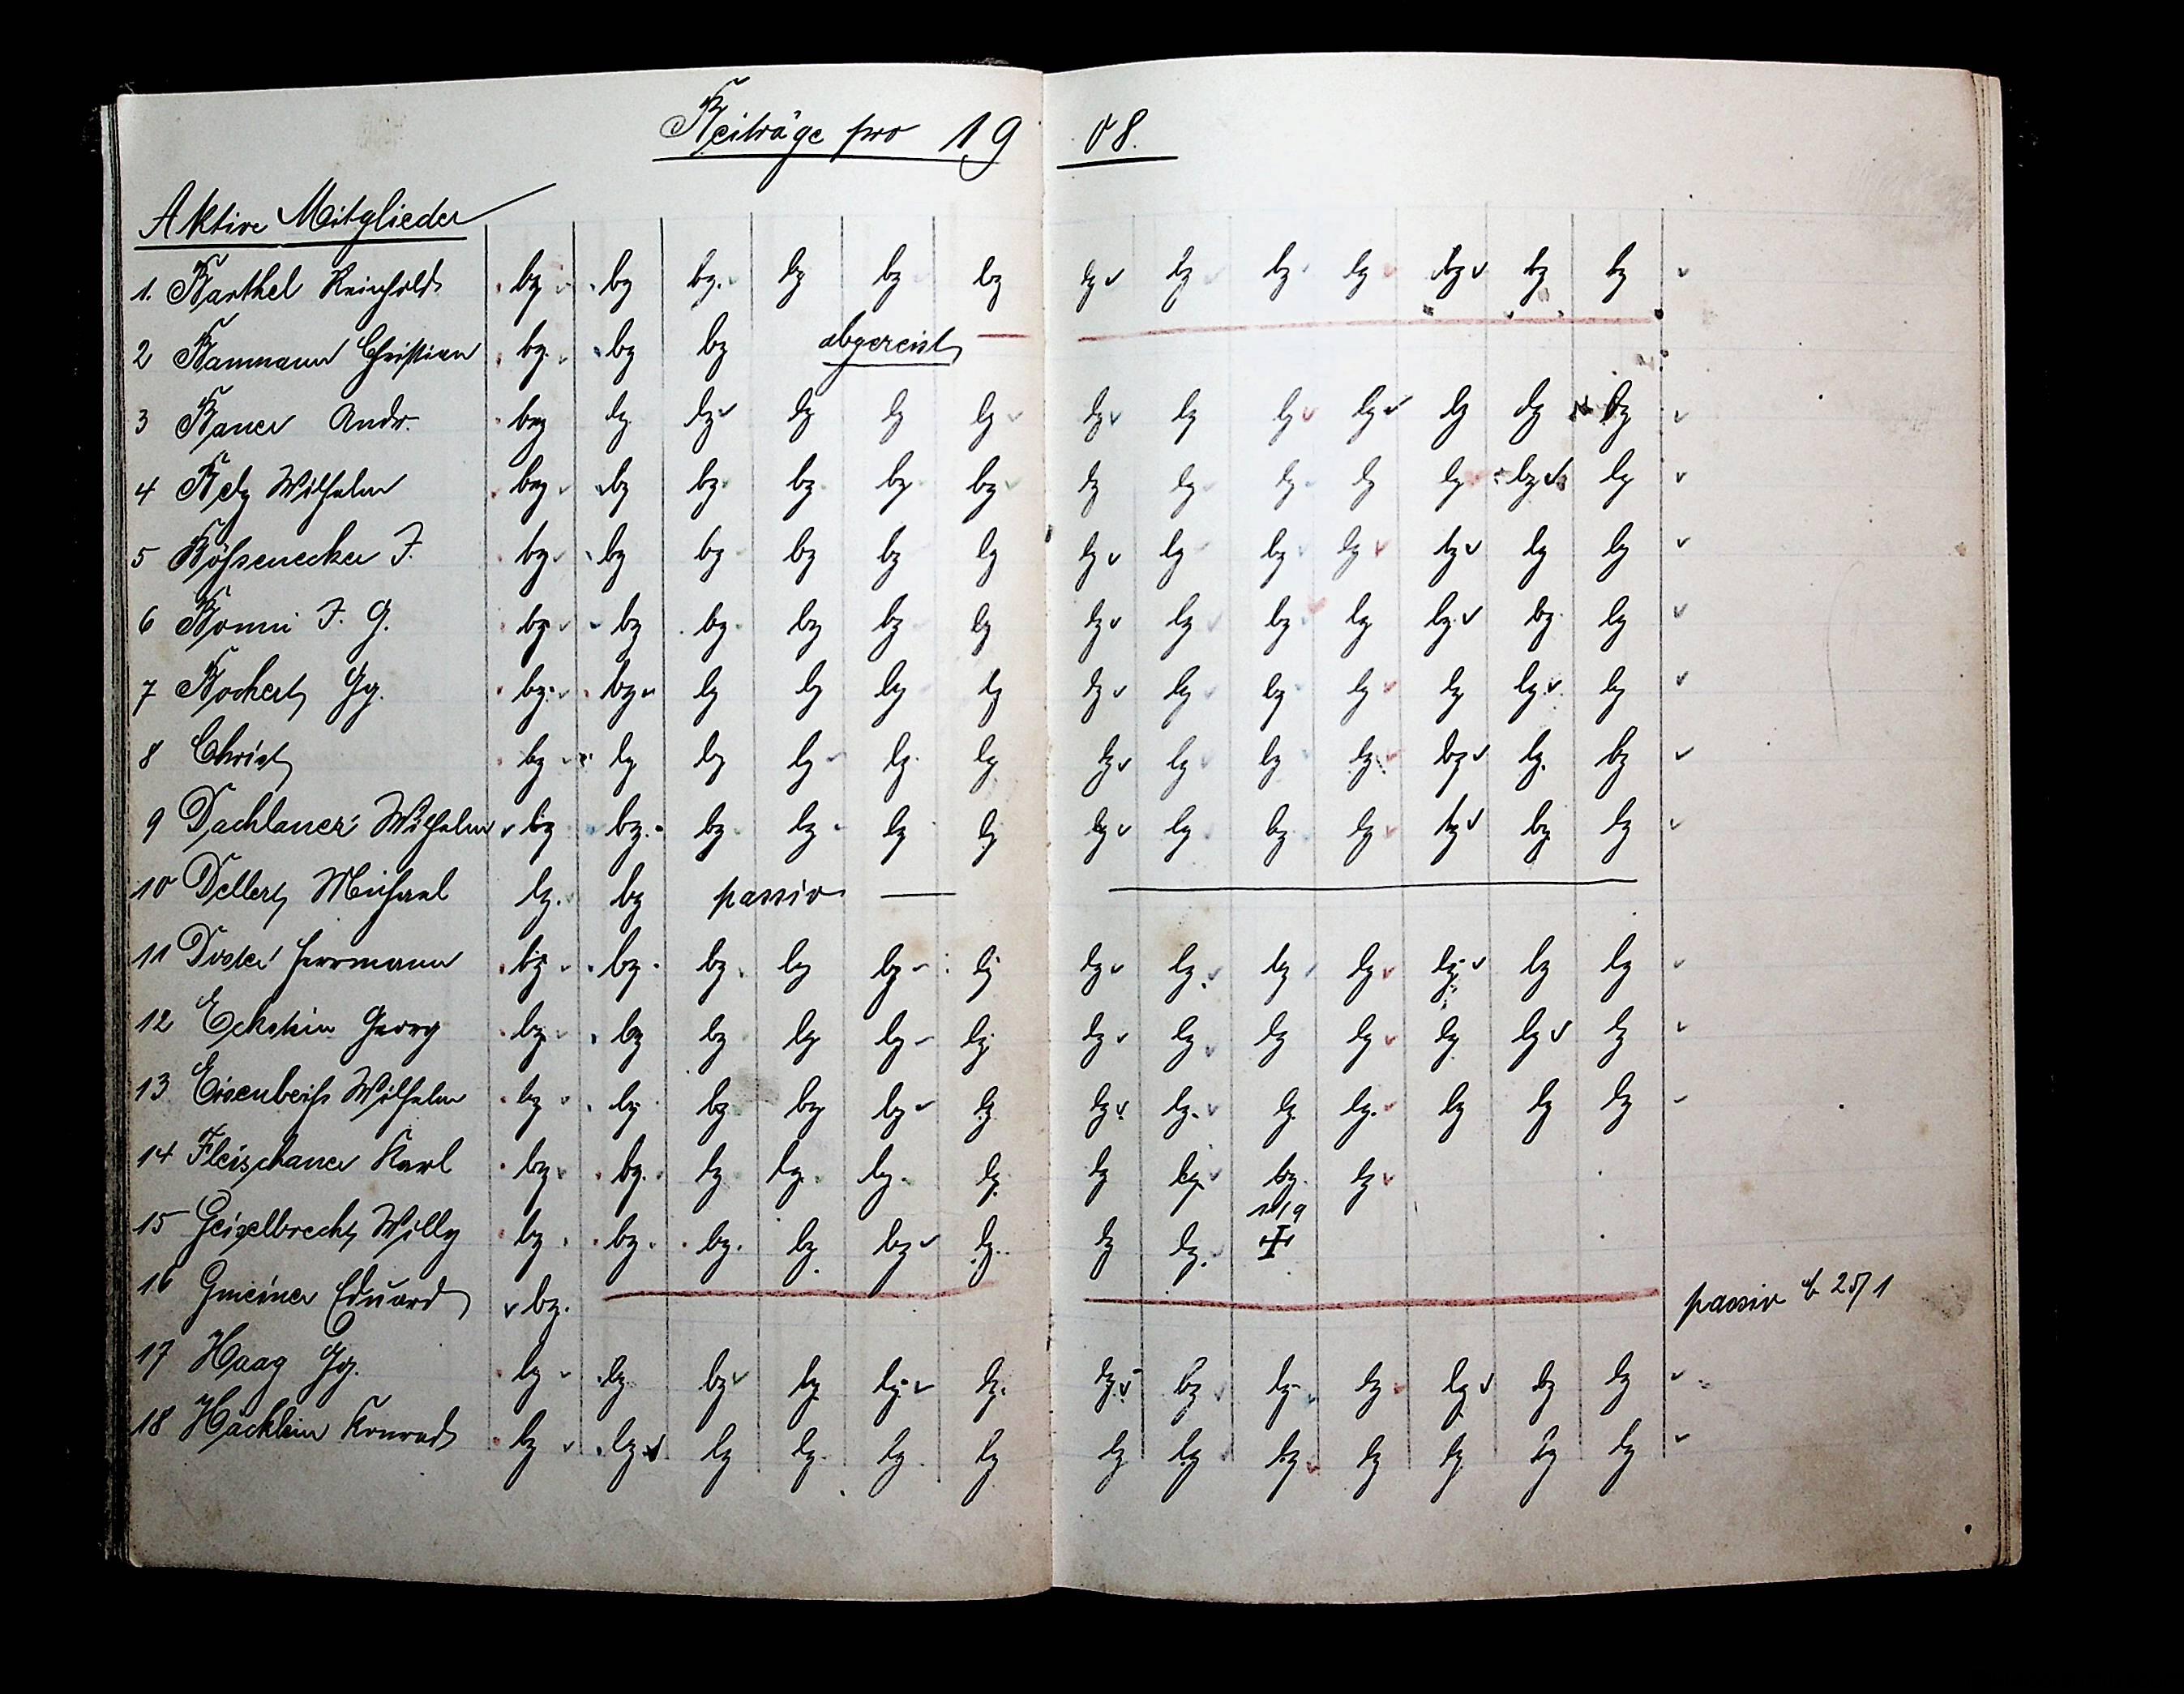 Beiträge pro 1908.
Aktive Mitglieder
1. Barthel Reinhold bz bz bz. bz bz bz bz bz bz bz bz bz bz
2 Christian bz. bz bz abgereist
3 Bauer Andr. bez bz bz bz bz bz bz bz bz bz bz bz bz
4 Betz Wilhelm bez bz bz bz bz bz bz bz bz bz bz bz bz
5 Bößenecker J. bz bz bz bz bz bz bz bz bz bz bz bz bz
6 J. G. bz bz bz bz bz bz bz bz bz bz bz bz bz
7 Gg. bz bz bz bz bz bz bz bz bz bz bz bz bz
8 Christ bz bz bz bz bz bz bz bz bz bz bz bz bz
9 Dachlauer Wilhelm bz bz. bz bz bz bz bz bz bz bz bz bz bz
10 Dellert Michael bz. bz passiv
11 Herrmann bz bz. bz bz bz bz bz bz bz bz bz bz bz
12 Eckstein Georg bz bz bz bz bz bz bz bz bz bz bz bz bz
13 Eisenbeiß Wilhelm bz bz bz bz bz bz bz bz. bz bz. bz bz bz
14 Fleischauer Karl bz bz. bz bz. bz. bz bz bz bz. bz
15 Geiselbrecht Willy bz bz. bz. bz bz bz. bz bz. 10/9 ✝
16 Gmeiner Eduard bz. passiv 25/1
17 Haag Gg. bz bz bz bz bz bz. bz bz bz bz bz bz bz
18 Häcklein Konrad bz bz bz bz bz bz bz bz bz bz bz bz bz